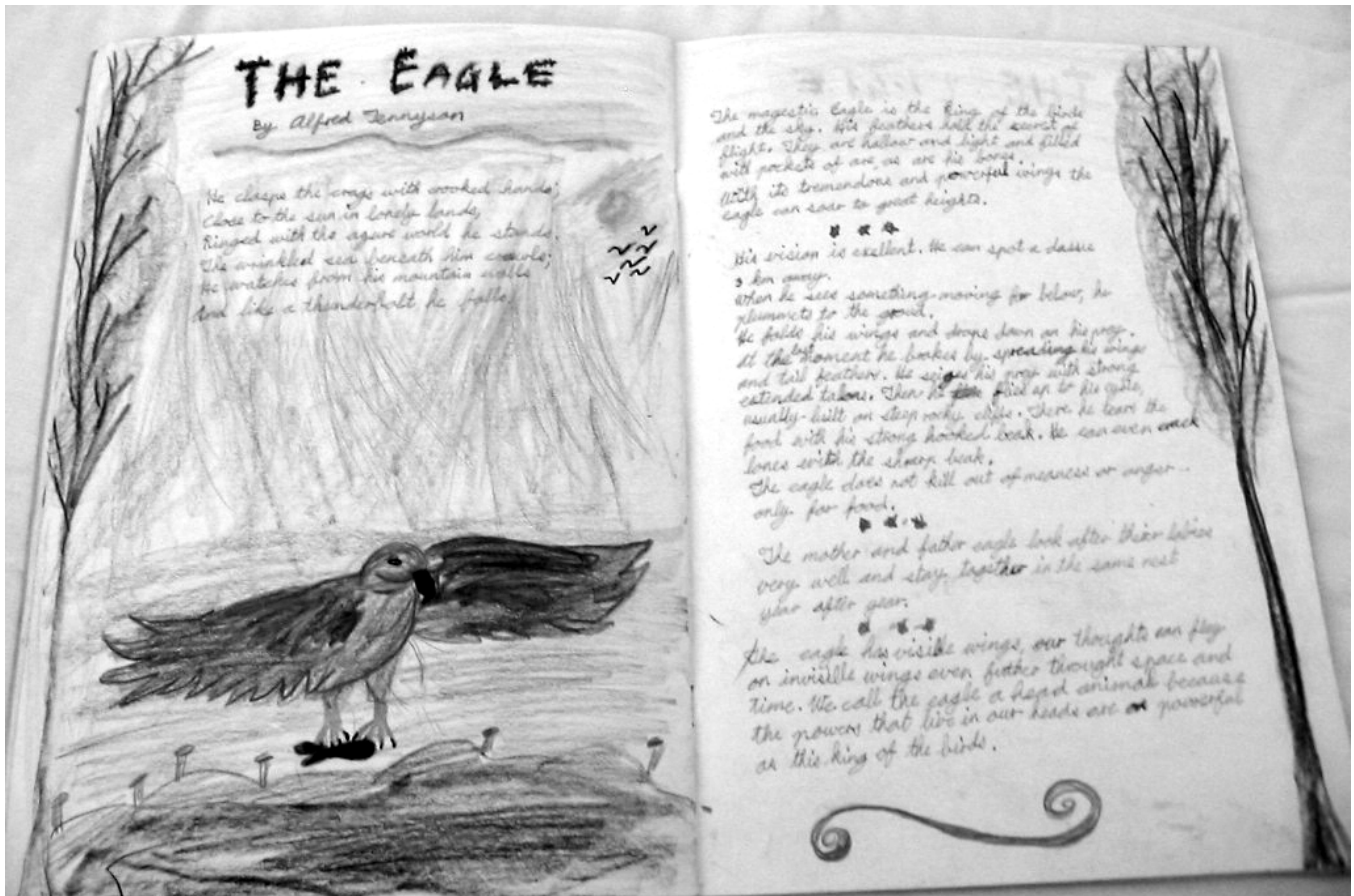 THE EAGLE
By Alfred Tennyson
He clasps the crags with crooked hands;
Close to the sun in lonely lands,
Ringed with the azure world he stands.
The wrinkled sea beneath him crawls;
He watches from his mountain walls
And like a thunderbolt he falls.
The magestic Eagle is the King of the birds
and the sky. His feathers hold the secret of
flight. They are hollow and light and filled
with pockets of are, as are his bones.
With its tremendous and powerful wings the
eagle can soar to great heights.
His vision is exellent. He can spot a dassie
3 km away.
When he sees something moving far below, he
plummets to the groud.
He folds his wings and drops down on his prey.
At the last moment he brakes by spreading his wings
and tail feathers. He seizes his prey with strong
extended talons. Then he flies up to his eyrie,
usually built on steep rocky cliffs. There he tears the
food with his strong hooked beak. He can even crack
bones with the sharp beak.
The eagle does not kill out of meaness or anger
only for food.
The mother and father eagle look after thier babies
very well and stay together in the same nest
year after year.
The eagle has visible wings, our thoughts can fley
on invisible wings even futher throught space and
time. We call the eagle a head animal because
the powers that live in our heads are as powerful
as this king of the birds.